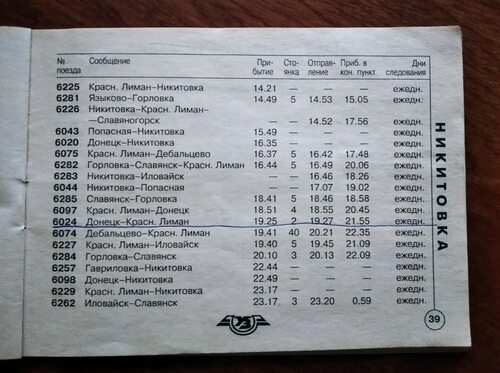 № поезда Сообщение Прибытие Стоянка Отправление Приб. в кон. пункт Дни следования
6225 Красн. Лиман–Никитовка 14.21 – – – ежедн.
6281 Языково–Горловка 14.49 5 14.53 15.05 ежедн.
6226 Никитовка–Красн. Лиман–
–Славяногорск – – 14.52 17.56 ежедн.
6043 Попасная–Никитовка 15.49 – – – ежедн.
6020 Донецк–Никитовка 16.35 – – – ежедн.
6075 Красн. Лиман–Дебальцево 16.37 5 16.42 17.48 ежедн.
6282 Горловка–Славянск–Красн. Лиман 16.44 5 16.49 20.06 ежедн.
6283 Никитовка–Иловайск – – 16.46 18.26 ежедн.
6044 Никитовка–Попасная – – 17.07 19.02 ежедн.
6285 Славянск–Горловка 18.41 5 18.46 18.58 ежедн.
6097 Красн. Лиман–Донецк 18.51 4 18.55 20.45 ежедн.
6024 Донецк–Красн. Лиман 19.25 2 19.27 21.55 ежедн.
6074 Дебальцево–Красн. Лиман 19.41 40 20.21 22.35 ежедн.
6227 Красн. Лиман–Иловайск 19.40 5 19.45 21.09 ежедн.
6284 Горловка–Славянск 20.10 3 20.13 22.09 ежедн.
6257 Гавриловка–Никитовка 22.44 – – – ежедн.
6098 Донецк–Никитовка 22.49 – – – ежедн.
6229 Красн. Лиман–Никитовка 23.17 – – – ежедн.
6262 Иловайск–Славянск 23.17 3 23.20 0.59 ежедн.
НИКИТОВКА
УЗ
39